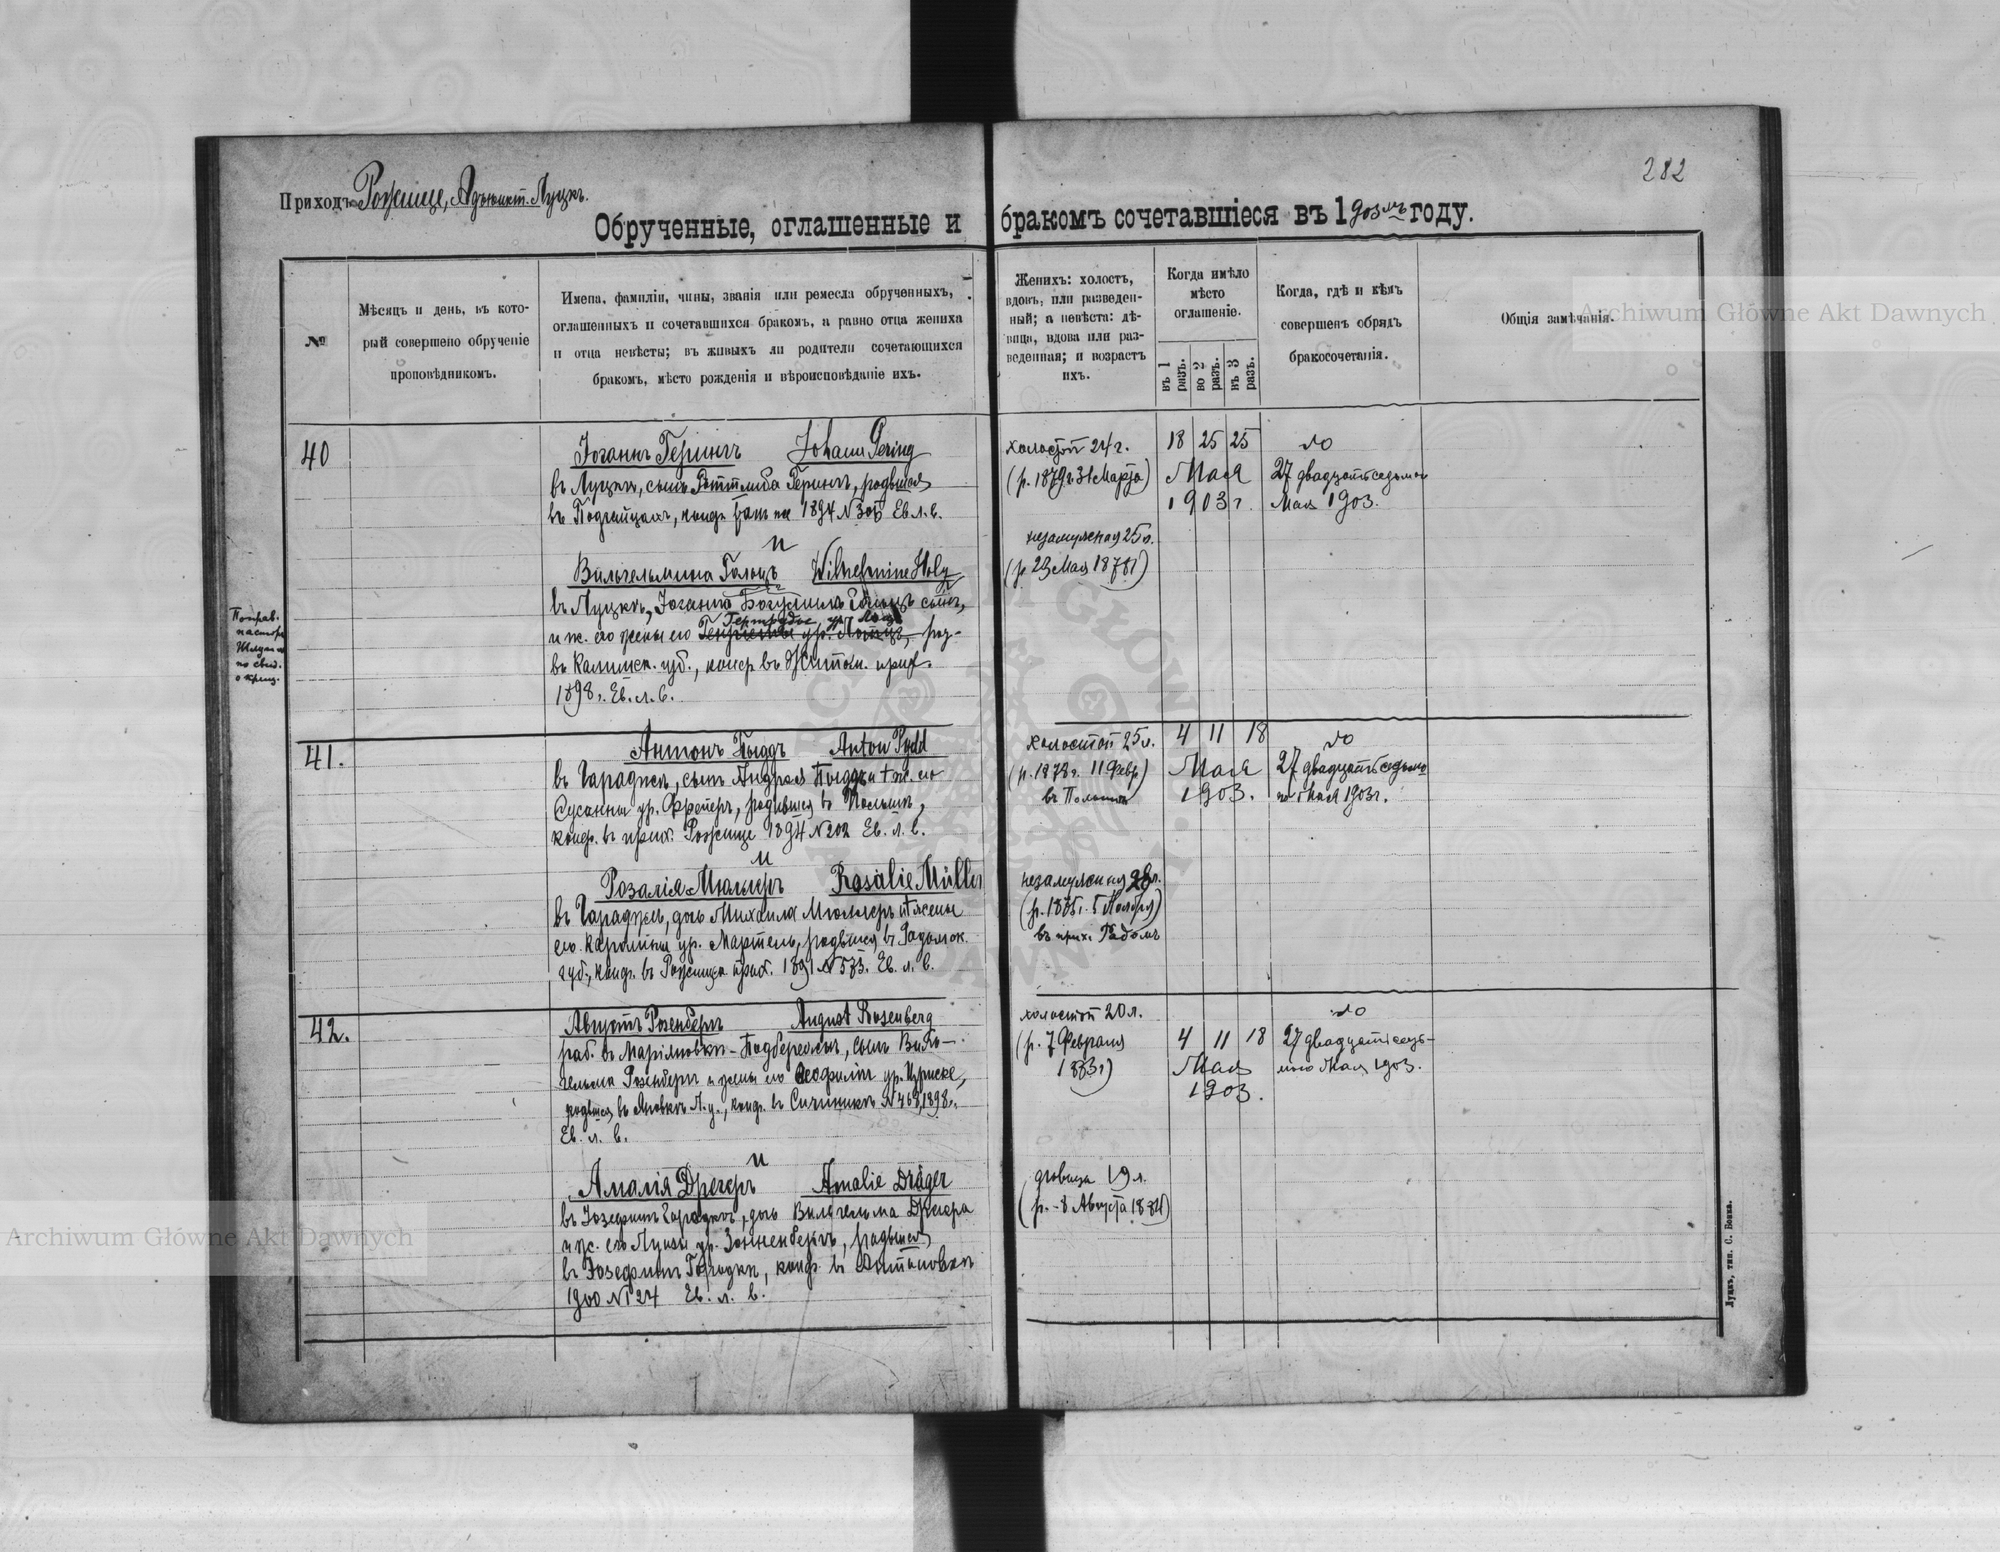 282
Приходъ Рожище, Адъюнкт. Луцкъ.
Обрученные, оглашенные и бракомъ сочетавшіеся въ 1903мъ году.
№
Мѣсяцъ и день, въ кото-
рый совершено обрученіе
проповѣдникомъ.
Имена, фамиліи, чины, званія или ремесла обрученныхъ,
оглашенныхъ и сочетавшихся бракомъ, а равно отца жениха
и отца невѣсты; въ живыхъ ли родители сочетающихся
бракомъ, мѣсто рожденія и вѣроисповѣданіе ихъ.
Женихъ: холостъ,
вдовъ, или разведен-
ный; а невѣста: дѣ-
вица, вдова или раз-
веденная; и возрастъ
ихъ.
Когда имѣло
мѣсто
оглашеніе.
въ 1
разъ.
во 2
разъ.
въ 3
разъ.
Когда, гдѣ и кѣмъ
совершенъ обрядъ
бракосочетанія.
Общія замѣчанія.
40
Іоганъ Герингъ Johann Gering
въ Луцкѣ, сынъ Готтлиба Герингъ, родився
въ Подгайцахъ, конф. 1894 № 306 Ев. л. в.
и
Вильгельмина Гольцъ Wilhelmine Holz
въ Луцкѣ, Іоганна Богумила Гольцъ
и ж. его жены его ур. род-
въ Калишск. губ., конф. въ Житом. приход.
1898 г. Ев. л. в.
Поправ.
пастор
по свид.
о крещ.
холостой 24 г.
(р. 1879 г. 31 Марта)
18 25 25
Мая
1903 г.
до
27 двадцать седьмого
Мая 1903.
незамужная 25 л.
(р. 23 Мая 1878 г.)
41.
Антонъ Пыддъ Anton Pydd
въ Гараджѣ, сынъ Андрея Пыддъ и † ж. его
Сусанны ур. Фрейеръ, родився въ Польшѣ,
конф. въ прих. Рожище 1894 № 202 Ев. л. в.
и
Розалія Мюллеръ Rosalie Müller
въ Гараджѣ, дочь Михаила Мюллеръ и жены
его Каролины ур. Мартель, родився въ Радомск.
губ., конф. въ Рожище прих. 1891 № 583. Ев. л. в.
холостой 25 л.
(р. 1878 г. 11 Февр.)
въ Польшѣ
4 11 18
Мая
1903.
до
27 двадцать седьмо
го Мая 1903 г.
незамужная 28 л.
(р. 1875 г. 5 Ноября)
въ прих. Радомъ
42.
Августъ Розенбергъ August Rosenberg
раб. въ Маріяновкѣ-Подбережьѣ, сынъ Виль-
гельма Розенбергъ и жены его Теофиліи ур. Цриске,
родився въ Яновкѣ Л. у., конф. въ Сичиникѣ № 468, 1898 г.
Ев. л. в.
и
Амалія Дрегеръ Amalie Dräger
въ Іозефинъ Городкѣ, дочь Вильгельма Дрегера
и ж. его Луизы ур. Зонненбергъ, родився
въ Іозефинъ Городкѣ, конф. въ Антоновкѣ
1900 № 124 Ев. л. в.
холостой 20 л.
(р. 7 Февраля
1883 г.)
4 11 18
Мая
1903.
до
27 двадцать седь-
мого Мая 1903.
дѣвица 19 л.
(р. 8 Августа 1884)
Луцкъ, тип. С. Бонка.
Archiwum Główne Akt Dawnych
Archiwum Główne Akt Dawnych